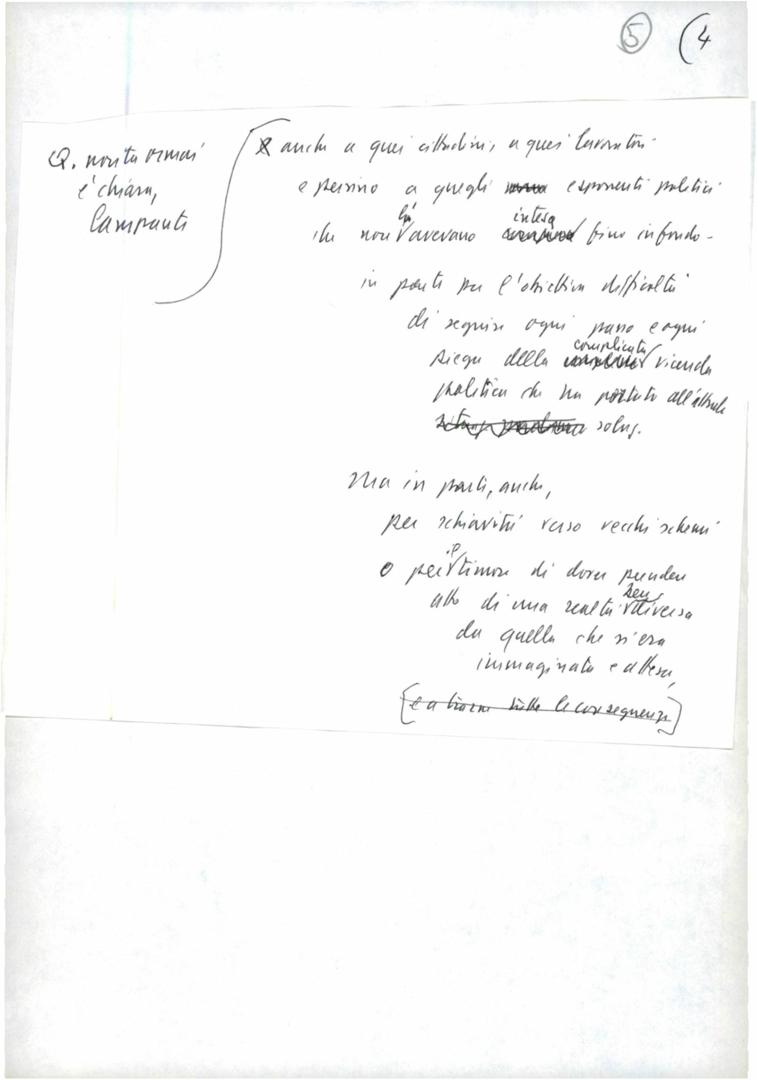 5 (4
Q. novità ormai
è chiara,
lampante
anche a quei cittadini, a quei lavoratori
e persino a quegli esponenti politici
che non l'avevano intesa fino in fondo -
in parte per l'obiettiva difficoltà
di seguire ogni passo e ogni
piega della complicata vicenda
politica che ha portato all'attuale
soluz.
Ma in parte, anche,
per schiavitù verso vecchi schemi
o per il timore di dover prendere
atto di una realtà ben diversa
da quella che si era
immaginata e attesa,
[e a trarne tutte le conseguenze]